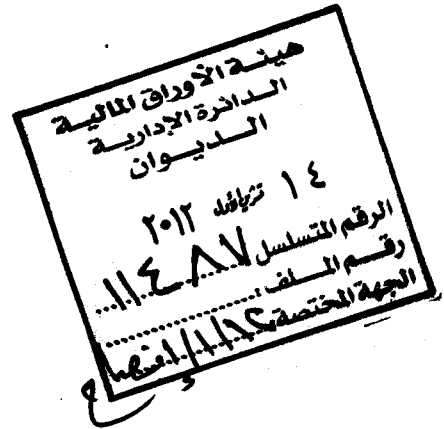 هيئة الأوراق المالية
الدائرة الإدارية
الديوان
١٤ تشرين أول ٢٠١٢
الرقم المتسلسل ١١٤٨٧
رقم الملف :
الجهة المختصة